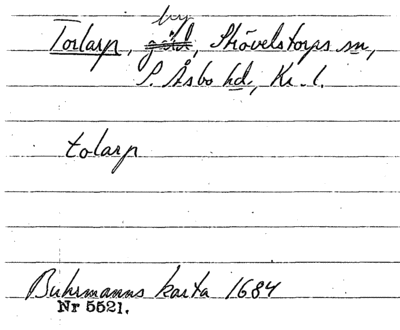 by
Torlarp, gård, Strövelstorps sn,
S. Åsbo hd., Kr. l.
tolarp
Buhrmanns karta 1684
Nr 5521.